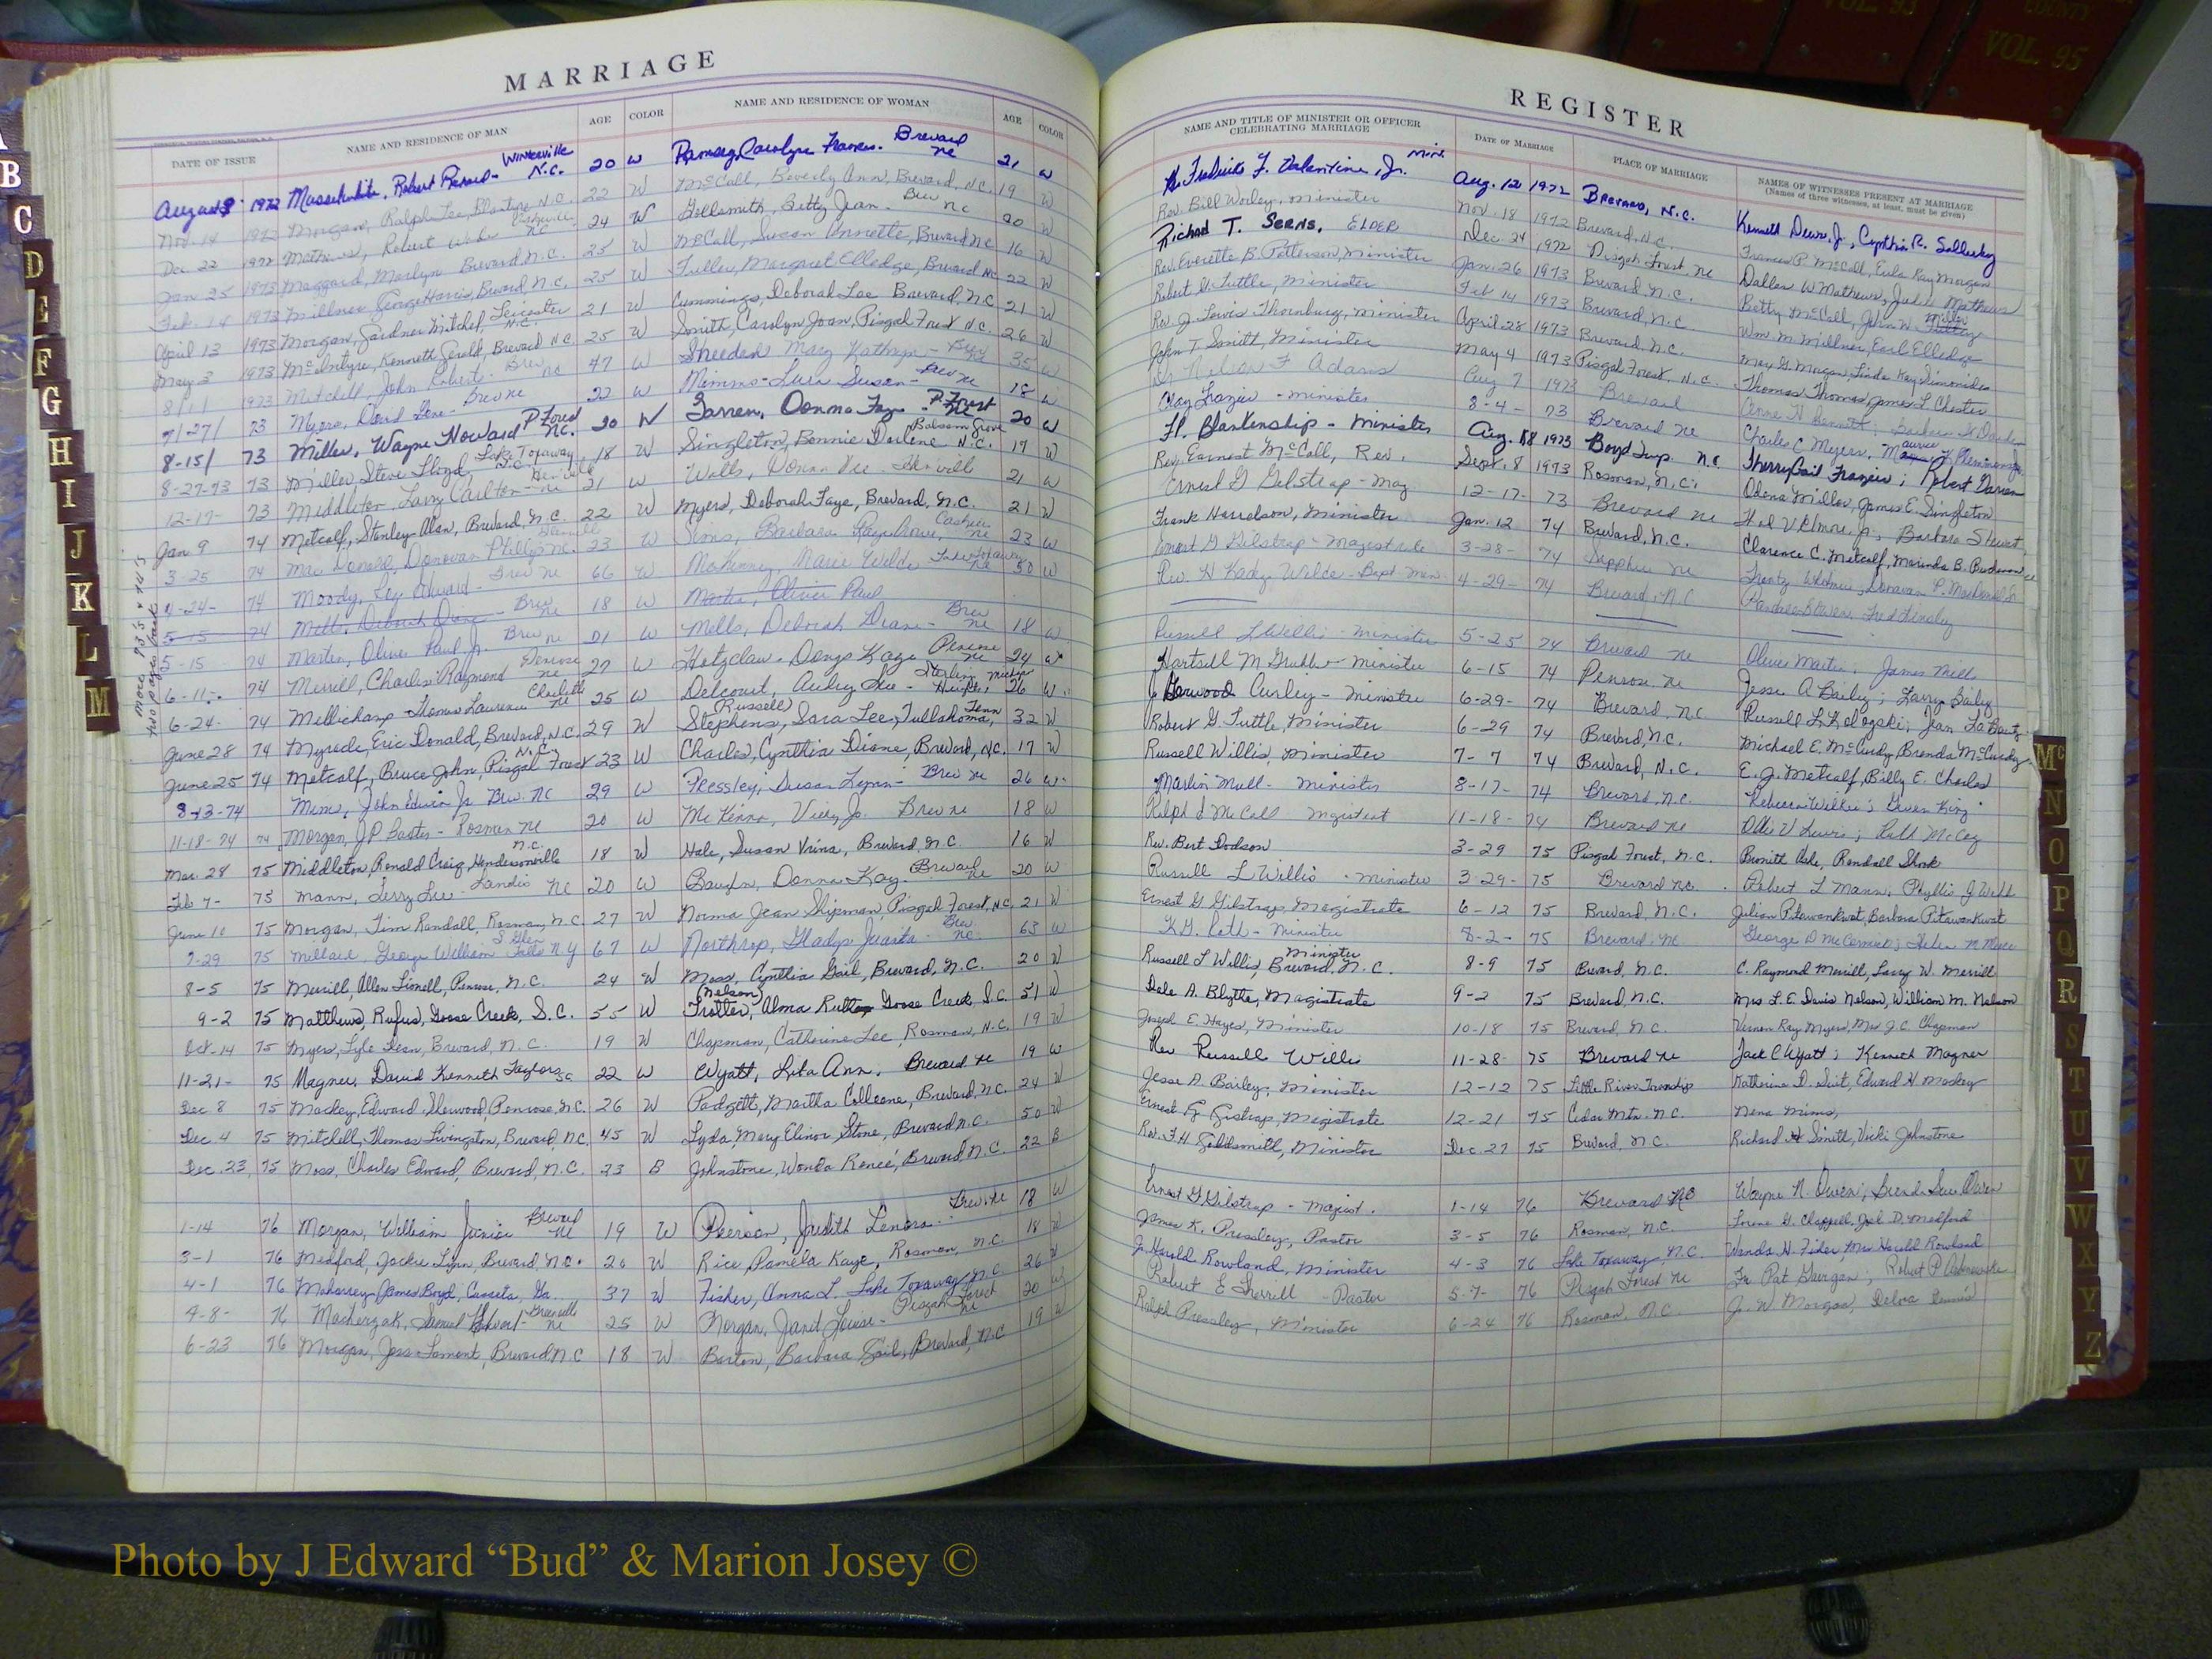 MARRIAGE
DATE OF ISSUE NAME AND RESIDENCE OF MAN AGE COLOR NAME AND RESIDENCE OF WOMAN AGE COLOR
1972 Robert Winterville N.C. 20 W Carolyn Frances. Brevard NC 21 W
Nov. 14 1972 Morgan, Ralph Lee, N.C. 22 W McCall, Beverly Ann, Brevard, N.C. 19 W
Dec 22 1972 Mathews, Robert 24 W Goldsmith, Betty Jean - Brev NC 20 W
Jan 25 1973 Maggard, Marlyn Brevard, N.C. 25 W McCall, Susan Annette, Brevard NC 16 W
Feb. 14 1973 Millner George Harris, Brevard, N.C. 25 W Fuller, Margaret Elledge, Brevard NC 22 W
April 13 1973 Morgan, Gardner Mitchel, Leicester N.C. 21 W Cummings, Deborah Lee Brevard, N.C. 21 W
May 3 1973 McIntyre, Kenneth Gerald, Brevard N.C. 25 W Smith, Carolyn Joan, Pisgah Forest N.C. 26 W
8/1/ 1973 Mitchell, John Robert - Brev NC 47 W Mary Kathryn - Brev 35 W
7/27/ 73 Myers, David Gene - Brev NC 22 W Mimms - Susan - Brev NC 18 W
8-15/ 73 Miller, Wayne Howard P. Forest N.C. 20 W Garren, Donna Faye - P. Forest NC 20 W
8-27-73 73 Miller, Steve Lloyd, Lake Toxaway N.C. 18 W Singleton, Bonnie Darlene Balsam Grove N.C. 17 W
12-17- 73 Middleton, Larry Carlton - NC 21 W Donna 21 W
Jan 9 74 Metcalf, Stanley Alan, Brevard, N.C. 22 W Myers, Deborah Faye, Brevard, N.C. 21 W
3-25 74 Mac Donald, Donovan Phillip NC. 23 W Barbara 23 W
4-24- 74 Moody, Edward - Brev NC 66 W McKinney, Marie Wilda Lake Toxaway NC 50 W
5-15 74 Mills, Deborah Diane - Brev NC 18 W Martin, Oliver Paul
5-15 74 Martin, Oliver Paul Jr. Brev NC 21 W Mills, Deborah Diane - Brev NC 18 W
6-11- 74 Merrill, Charlie Raymond Penrose NC 27 W Kaye Penrose NC 24 W
6-24- 74 Mellichamp Thomas Lawrence Charlotte NC 25 W Delcourt, Sterling Heights, Michigan 26 W
June 28 74 Eric Donald, Brevard, N.C. 29 W Stephens, (Russell) Sara Lee, Tullahoma, Tenn 32 W
June 25 74 Metcalf, Bruce John, Pisgah Forest N.C. 23 W Charles, Cynthia Diane, Brevard, N.C. 17 W
8-13-74 Mims, John Edwin Jr. Brev. NC 29 W Pressley, Susan Lynn - Brev NC 26 W
11-18-74 74 Morgan, J.P. - Rosman NC 20 W McKinna, Vicky Jo. Brev NC 18 W
Mar. 28 75 Middleton, Ronald Craig, Hendersonville N.C. 18 W Hale, Susan Brevard, N.C. 16 W
Feb 7- 75 Mann, Terry Lee - Landis NC 20 W Donna Kay - Brevard NC 20 W
June 10 75 Morgan, Tim Randall, Rosman, N.C. 27 W Norma Jean Shipman, Pisgah Forest, N.C. 21 W
7-29 75 Millard, George William S. Glens Falls N.Y 67 W Northrop, Gladys Juanita - Brev NC. 63 W
8-5 75 Merrill, Allen Lionell, Penrose, N.C. 24 W Moss, Cynthia Gail, Brevard, N.C. 20 W
9-2 75 Matthews, Rufus, Goose Creek, S.C. 55 W Trotter, (Nelson) Alma Ruth Goose Creek, S.C. 51 W
Oct. 14 75 Myers, Lyle Dean, Brevard, N.C. 19 W Chapman, Catherine Lee, Rosman, N.C. 19 W
11-21- 75 Magner, David Kenneth Taylors SC 22 W Wyatt, Lita Ann. Brevard NC 19 W
Dec. 8 75 Mackey, Edward Sherwood, Penrose, N.C. 26 W Padgett, Martha Colleene, Brevard, N.C. 24 W
Dec. 4 75 Mitchell, Thomas Livingston, Brevard, N.C. 45 W Lyda Mary Elinor Stone, Brevard N.C. 50 W
Dec. 23, 75 Moss, Charles Edward, Brevard, N.C. 23 B Johnstone, Wonda Reneé, Brevard, N.C. 22 B
1-14 76 Morgan, William Junior Brevard NC 19 W Pierson, Judith Lenora - Brev. NC 18 W
3-1 76 Medford, Jackie Lynn, Brevard, N.C. 20 W Rice, Pamela Kaye, Rosman, N.C. 18 W
4-1 76 James Boyd, Ga. 37 W Fisher, Anna L. Lake Toxaway, N.C. 26 W
4-8- 76 25 W Morgan, Janet Louise - Pisgah Forest NC 20 W
6-23 76 Morgan, Jess Lamont, Brevard N.C 18 W Barton, Barbara Gail, Brevard, N.C 19 W
REGISTER
NAME AND TITLE OF MINISTER OR OFFICER CELEBRATING MARRIAGE DATE OF MARRIAGE PLACE OF MARRIAGE NAMES OF WITNESSES PRESENT AT MARRIAGE
(Names of three witnesses, at least, must be given)
Frederick F. Valentine, Jr. Min. Aug. 12 1972 Brevard, N.C. Kenneth Cynthia R.
Rev. Bill Worley, Minister Nov. 18 1972 Brevard, N.C. Frances P. McCall, Eula Kay Morgan
Richard T. Seens, ELDER Dec. 24 1972 Pisgah Forest, NC Dallas W Mathews, Mathews
Rev. Everette B. Patterson, Minister Jan. 26 1973 Brevard, N.C. Betty McCall, John W. Miller
Robert G. Tuttle, Minister Feb 14 1973 Brevard, N.C. Wm. M. Millner, Earl Elledge
Rev. J. Lewis Thornburg, Minister April 28 1973 Brevard, N.C. Max G. Morgan, Linda Kay Simonides
John T. Smith, Minister May 4 1973 Pisgah Forest, N.C. Thomas Thomas, James L. Chester
Dr Nelson F Adams Aug 7 1973 Brevard Anne H
Clay Frazier - Minister 8-4- 73 Brevard NC Charles C Myers,
Fl. Blankenship - Minister Aug. 18 1973 Boyd Twp. N.C. Sherry Gail Frazier; Robert Garren
Rev. Earnest McCall, Rev. Sept. 8 1973 Rosman, N.C. Odena Miller, James E. Singleton
Ernest G Gilstrap - Mag 12-17- 73 Brevard NC Hal V Elmore Jr, Barbara Stewart
Frank Harrelson, Minister Jan. 12 74 Brevard, N.C. Clarence C. Metcalf, Marinda B.
Ernest G Gilstrap - Magistrate 3-28- 74 Sapphire NC Donovan P. MacDonald Sr
Rev. H Kady Wilde - Bapt. Min 4-29- 74 Brevard, N.C Fred Hensley
Russell L Willis - Minister 5-25 74 Brevard NC Oliver Martin; James Mills
Hartsell M - Minister 6-15 74 Penrose NC Jesse A Bailey; Larry Bailey
J. Curley - Minister 6-29- 74 Brevard, NC Russell Jean
Robert G. Tuttle, Minister 6-29 74 Brevard, N.C. Michael E. McCurdy, Brenda McCurdy
Russell Willis, Minister 7-7 74 Brevard, N.C. E. J. Metcalf, Billy E. Charles
Martin Mull - Minister 8-17- 74 Brevard, N.C. Rebecca Wilkie; Gwen King
Ralph McCall - Magistrat 11-18- 74 Brevard NC Ollie V
Rev. Bert Dodson 3-29 75 Pisgah Forest, N.C. Randall
Russell L Willis - Minister 3-29- 75 Brevard NC. Robert L Mann, Phyllis J Webb
Ernest G. Gilstrap, Magistrate 6-12 75 Brevard, N.C. Julian Pitawankwat, Barbara Pitawankwat
K.G. Roth - Minister 8-2- 75 Brevard, NC George D McCormick; Helen M
Russell L Willis, Minister Brevard, N.C. 8-9 75 Brevard, N.C. C. Raymond Merrill, Larry W. Merrill
Dale A. Blythe, Magistrate 9-2 75 Brevard, N.C. Mrs L. E. Davis Nelson, William M. Nelson
Joseph E. Hayes, Minister 10-18 75 Brevard, N.C. Vernon Ray Myers, Mrs J.C. Chapman
Rev Russell Willis 11-28- 75 Brevard NC Jack C Wyatt; Kenneth Magner
Jesse A. Bailey, Minister 12-12 75 Little River Township Katherine D. Suit, Edward H Mackey
Ernest G. Gistrap, Magistrate 12-21 75 Cedar Mtn. N.C. Nena Mims,
Rev. F.H Goldsmith, Minister Dec. 27 75 Brevard, N.C. Richard H Smith, Vicki Johnstone
Ernest G Gilstrap - Magist. 1-14 76 Brevard NC Wayne N. Owen; Brenda Sue Owen
James K. Pressley, Pastor 3-5 76 Rosman, N.C. Chappell, Joel D. Medford
J. Harold Rowland, Minister 4-3 76 Lake Toxaway, N.C. Wanda H. Fisher, Mrs Harold Rowland
Robert E Sherrill - Pastor 5-7- 76 Pisgah Forest NC Fr. Pat
Ralph Pressley, Minister 6-24 76 Rosman, N.C. J. W. Morgan, Delva
more 73's + 74's
two pages back
B
C
D
E
F
G
H
I
J
K
L
M
Mc
N
O
P
Q
R
S
T
U
V
W
X
Y
Z
VOL. 93
COUNTY
VOL. 95
Photo by J Edward “Bud” & Marion Josey ©